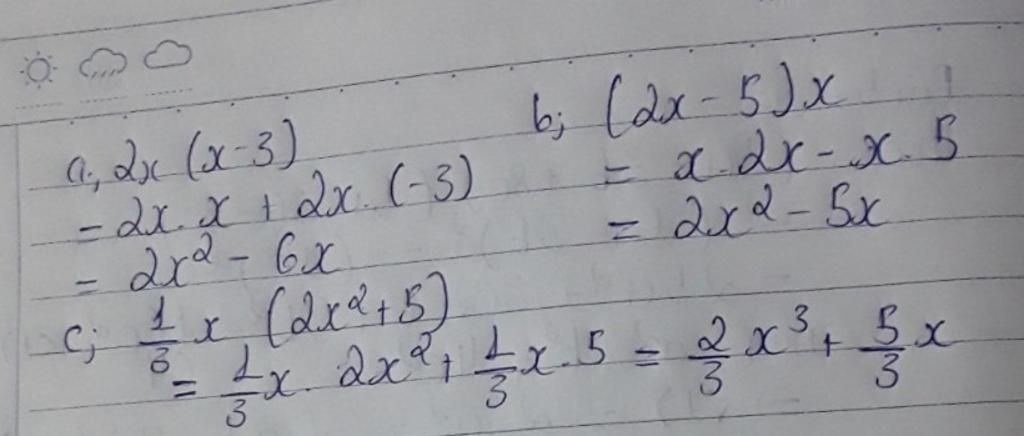 a; 2x (x-3)
= 2x. x + 2x. (-3)
= 2x² - 6x
b; (2x - 5)x
= x. 2x - x. 5
= 2x² - 5x
c; 1/3 x (2x²+5)
= 1/3 x. 2x² + 1/3 x. 5 = 2/3 x³ + 5/3 x